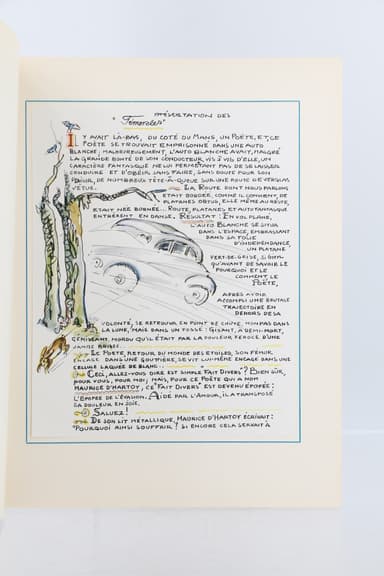 PRÉSENTATION DES
"Fémorales"
IL Y AVAIT LÀ-BAS, DU COTÉ DU MANS, UN POÈTE, ET, CE
POÈTE SE TROUVAIT EMPRISONNÉ DANS UNE AUTO
BLANCHE; MALHEUREUSEMENT, L'AUTO BLANCHE AVAIT, MALGRÉ
LA GRANDE BONTÉ DE SON CONDUCTEUR, VIS À VIS D'ELLE, UN
CARACTÈRE FANTASQUE NE LUI PERMETTANT PAS DE SE LAISSER
CONDUIRE ET D'OBÉIR SANS FAIRE, SANS DOUTE POUR SON
PLAISIR, DE NOMBREUX TÊTE-À-QUEUE SUR UNE ROUTE DE VERGLAS
VÊTUE.
LA ROUTE DONT NOUS PARLONS
ÉTAIT BORDÉE, COMME IL CONVIENT, DE
PLATANES OBTUS, ELLE MÊME AU RESTE,
ÉTAIT NÉE BORNÉE... ROUTE, PLATANES ET AUTO FANTASQUE
ENTRÈRENT EN DANSE. RÉSULTAT: EN VOL PLANÉ,
L'AUTO BLANCHE SE SITUA
DANS L'ESPACE, EMBRASSANT
DANS SA FOLIE
D'INDÉPENDANCE,
UN PLATANE
VERT-DE-GRISÉ, SI BIEN
QU'AVANT DE SAVOIR LE
POURQUOI ET LE
COMMENT, LE
POÈTE,
APRÈS AVOIR
ACCOMPLI UNE BRUTALE
TRAJECTOIRE EN
DEHORS DE SA
VOLONTÉ, SE RETROUVA, EN POINT DE CHUTE, NON PAS DANS
LA LUNE, MAIS DANS UN FOSSÉ: GISANT, À DEMI-MORT,
GÉMISSANT, MORDU QU'IL ÉTAIT PAR LA DOULEUR FÉROCE D'UNE
JAMBE BRISÉE...
LE POÈTE, RETOUR DU MONDE DES ÉTOILES, SON FÉMUR
ENCAGÉ DANS UNE GOUTTIÈRE, SE VIT LUI-MÊME ENCAGÉ DANS UNE
CELLULE LAQUÉE DE BLANC...
CECI, ALLEZ-VOUS DIRE EST SIMPLE FAIT DIVERS"? BIEN SÛR,
POUR VOUS, POUR MOI; MAIS, POUR CE POÈTE QUI A NOM
MAURICE D'HARTOY, CE "FAIT DIVERS" EST DEVENU ÉPOPÉE:
L'ÉPOPÉE DE L'ÉVASION. AIDÉ PAR L'AMOUR, IL A TRANSPOSÉ
SA DOULEUR EN JOIE.
SALUEZ!
DE SON LIT MÉTALLIQUE, MAURICE D'HARTOY ÉCRIVAIT:
"POURQUOI AINSI SOUFFRIR? SI ENCORE CELA SERVAIT À